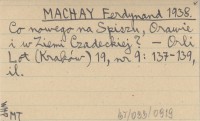 MACHAY Ferdynand 1938.
Co nowego na Spiszu, Orawie
i w Ziemi Czadeckiej? — Orli
Lot (Kraków) 19, nr 9: 137-139,
il.
MT